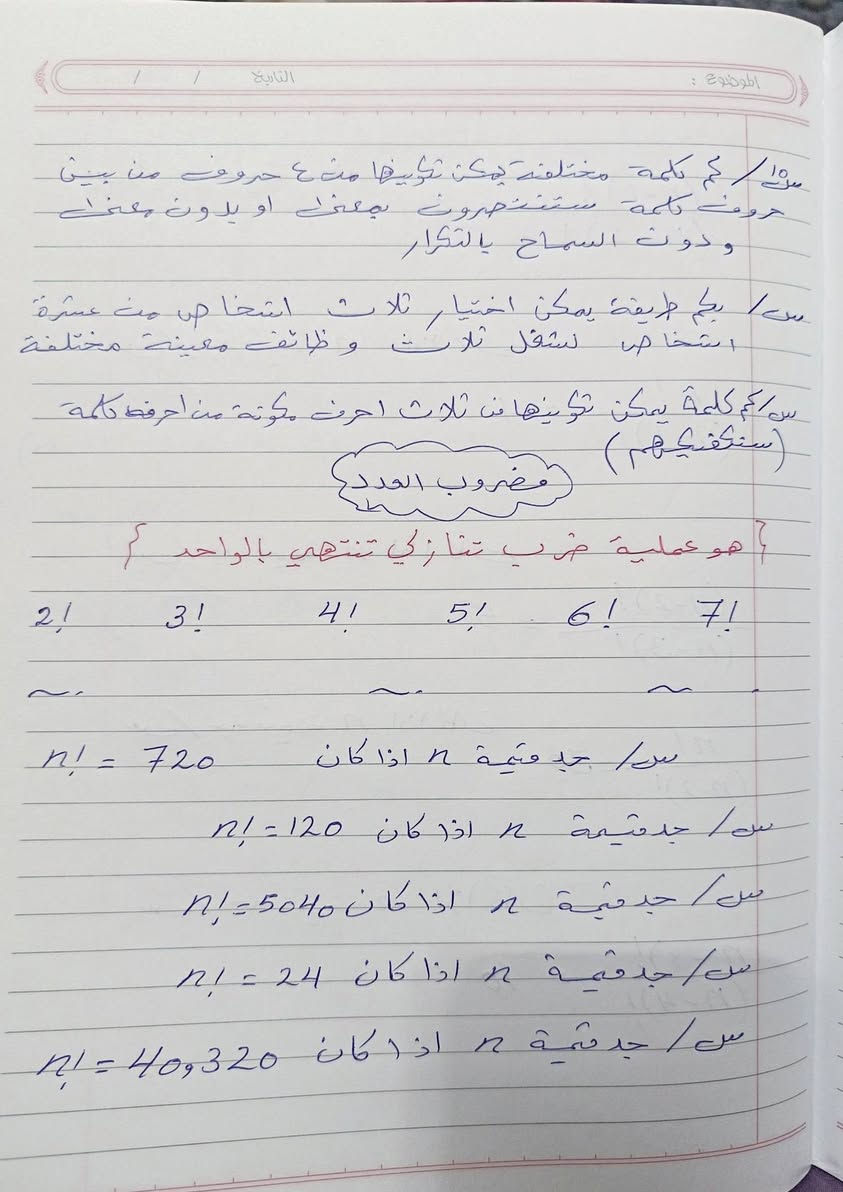 الموضوع : التاريخ / /
س١٥/ كم كلمة مختلفة يمكن تكوينها من ٤ حروف من بين
حروف كلمة ستنتصرون بمعنى او بدون معنى
ودون السماح بالتكرار
س/ بكم طريقة يمكن اختيار ثلاث اشخاص من عشرة
اشخاص لشغل ثلاث وظائف معينة مختلفة
س/ كم كلمة يمكن تكوينها من ثلاث احرف مكونة من احرف كلمة
(ستكفيكهم)
مضروب العدد
{هو عملية ضرب تنازلي تنتهي بالواحد}
2! 3! 4! 5! 6! 7!
س/ جد قيمة n اذا كان n! = 720
س/ جد قيمة n اذا كان n! = 120
س/ جد قيمة n اذا كان n! = 5040
س/ جد قيمة n اذا كان n! = 24
س/ جد قيمة n اذا كان n! = 40,320